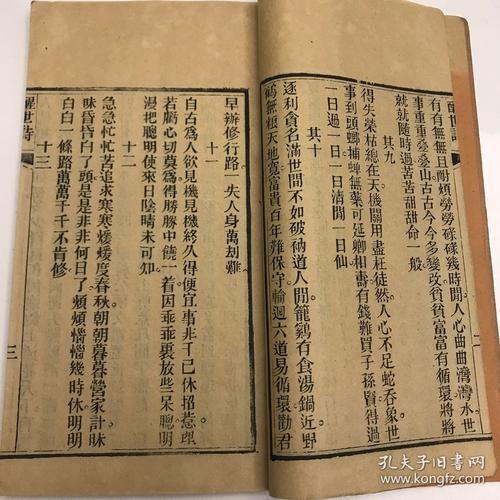 醒世詩
有有無無且耐煩勞勞碌碌幾時閒人心曲曲灣灣水世
事重重疊疊山古古今今多變改貧貧富富有循環將將
就就隨時過苦苦甜甜命一般
其九
得失榮枯總在天機關用盡枉徒然人心不足蛇吞象世
事到頭螂捕蟬無藥可延卿相壽有錢難買子孫賢得過
一日過一日一日清閒一日仙
其十
逐利貪名滿世間不如破衲道人閒籠鷄有食湯鍋近野
鶴無糧天地寬富貴百年難保守輪迴六道易循環勸君
早辦修行路一失人身萬刼難
十一
自古為人欲見機見機終久得便宜事非干己休招惹
若虧心切莫為得勝勝中饒一着因乖乖裹放些呆聰明
漫把聰明使來日陰晴未可知
十二
急急忙忙苦追求寒寒煖煖度春秋朝朝暮暮營家計昧
昧昏昏白了頭是是非非何日了煩煩惱惱幾時休明明
白白一條路萬萬千千不肯修
十三
醒世詩
三
孔夫子旧书网